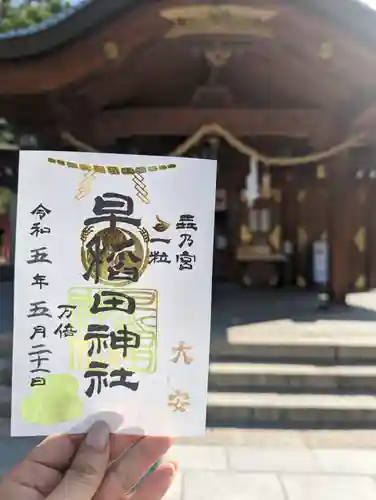 乃宮
一粒
万倍
大安
早稲田神社
令和五年五月二十一日